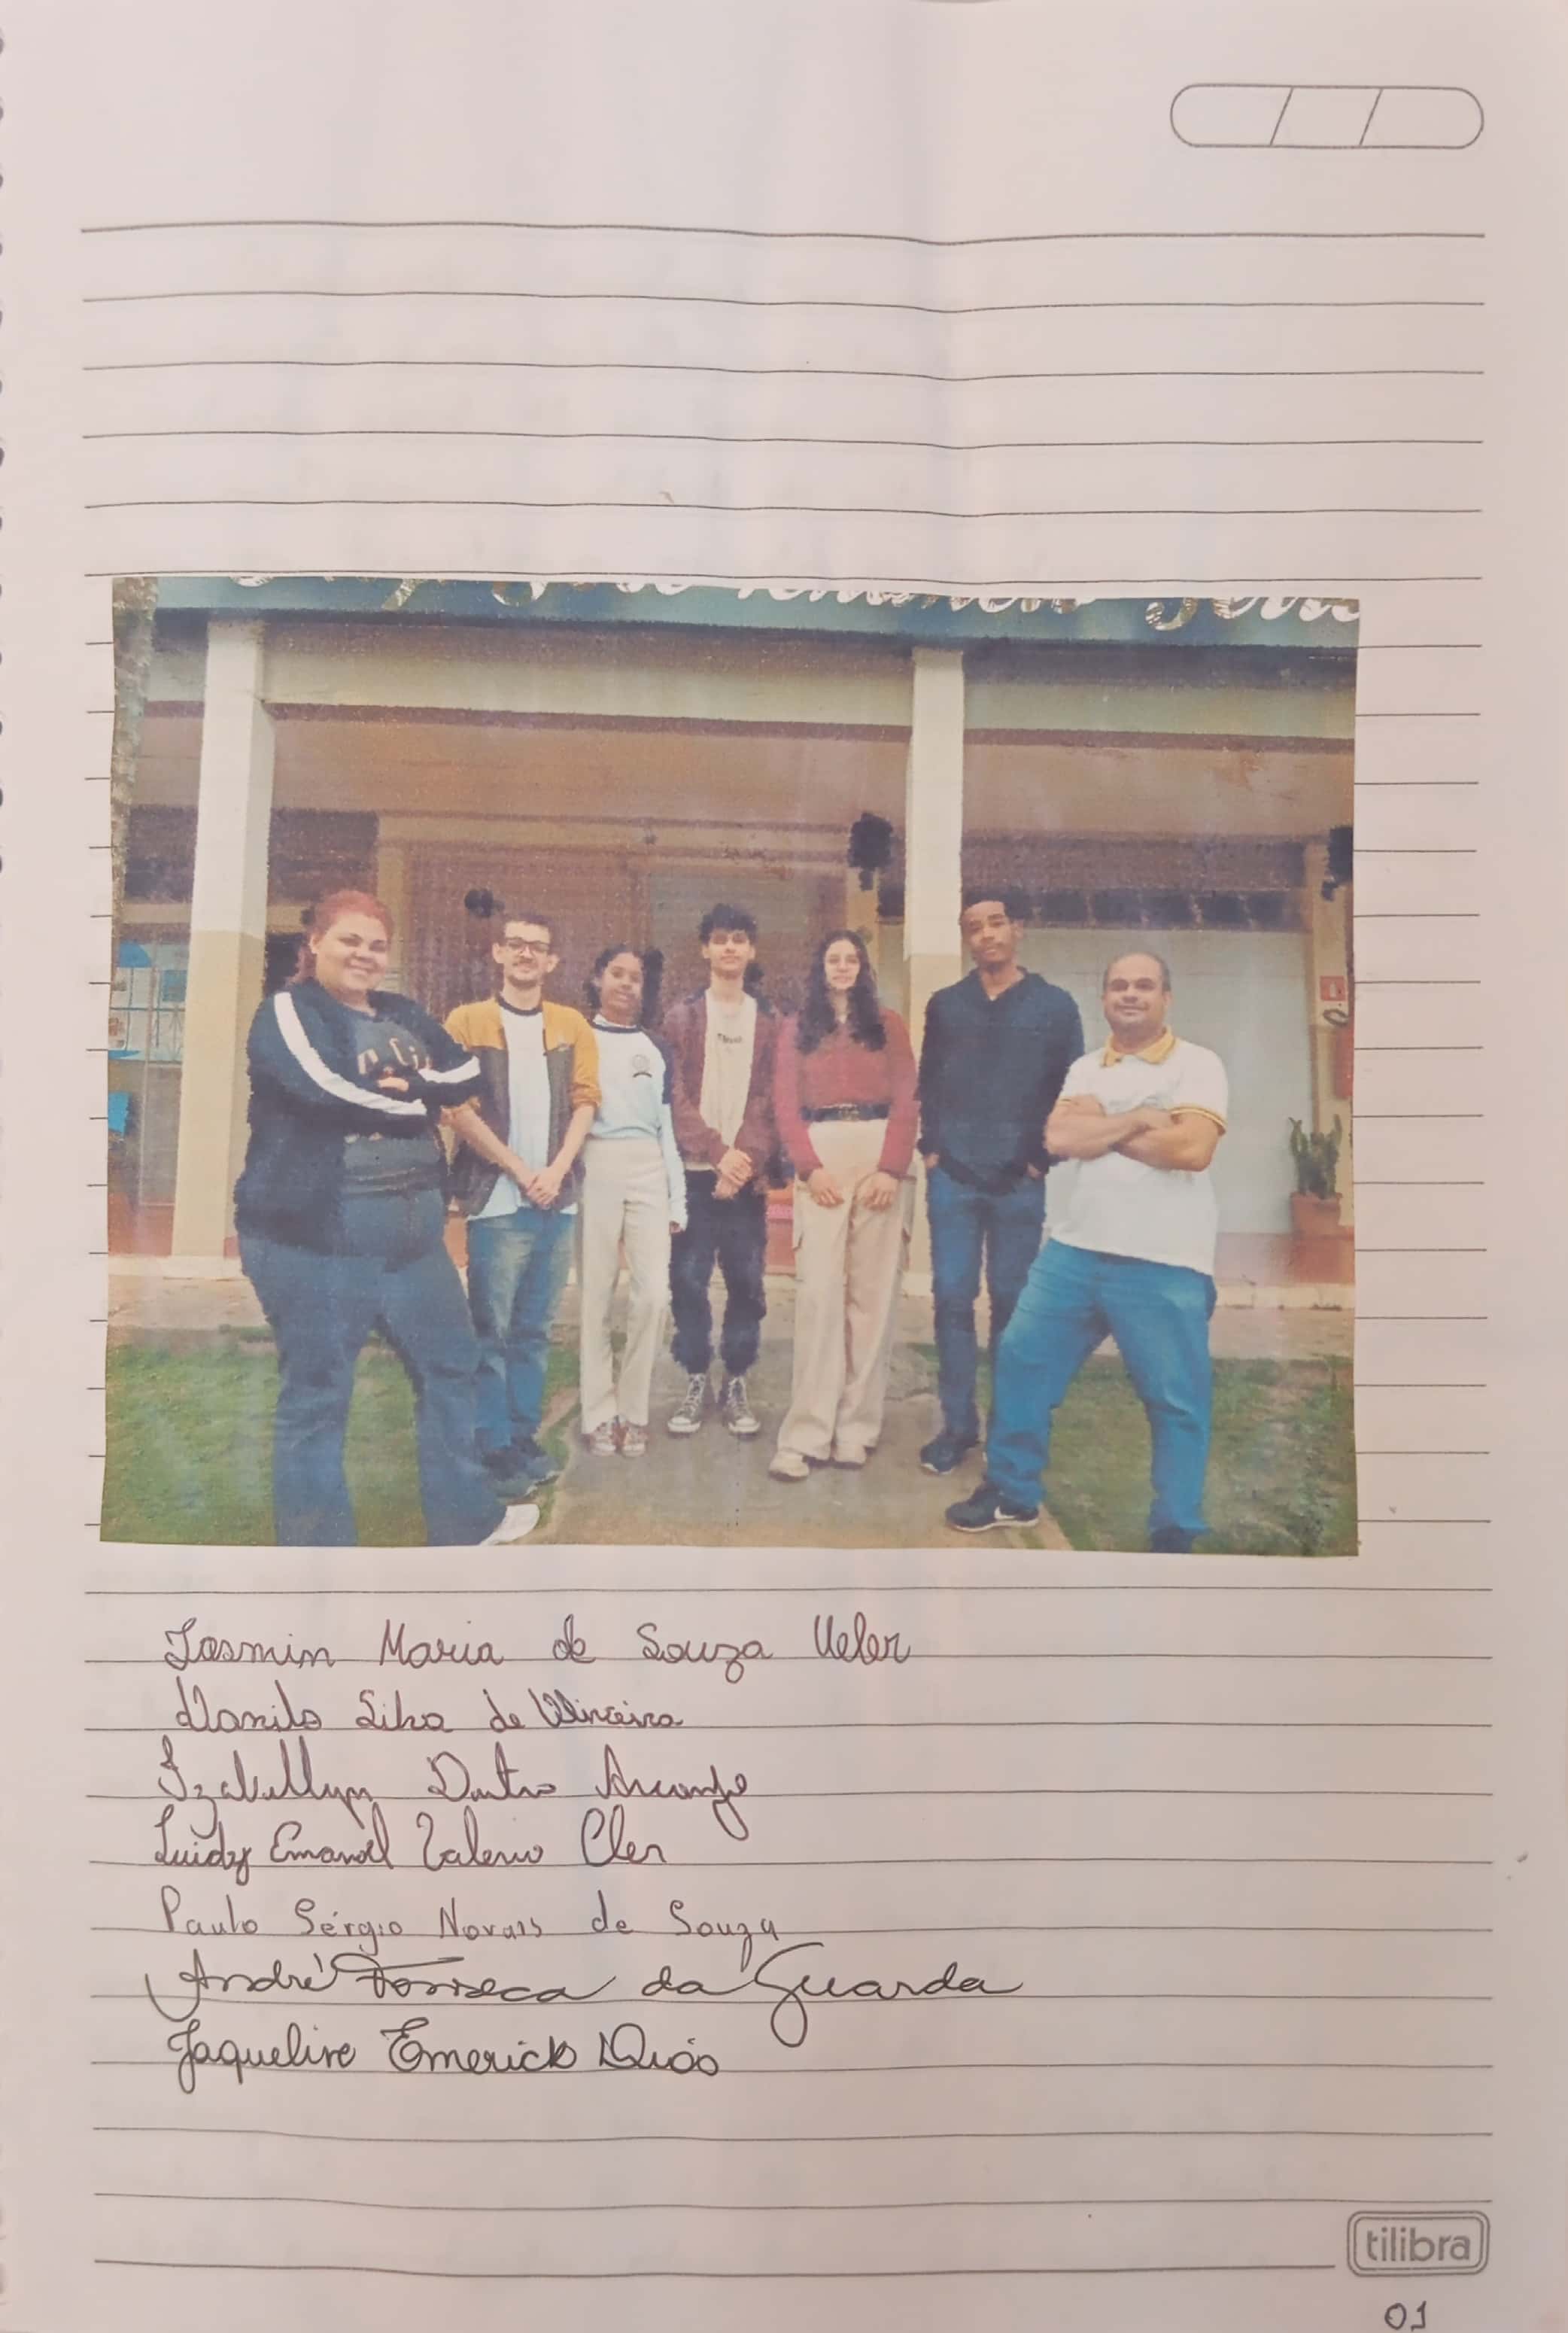 José Venâncio
Iasmin Maria de Souza Heler
Danilo Silva de Oliveira
Izabellyn Dutra Arcanjo
Luidy Emanoel Valerio Cler
Paulo Sérgio Novais de Souza
André Fonseca da Guarda
Jaqueline Emerick Dião
tilibra
01